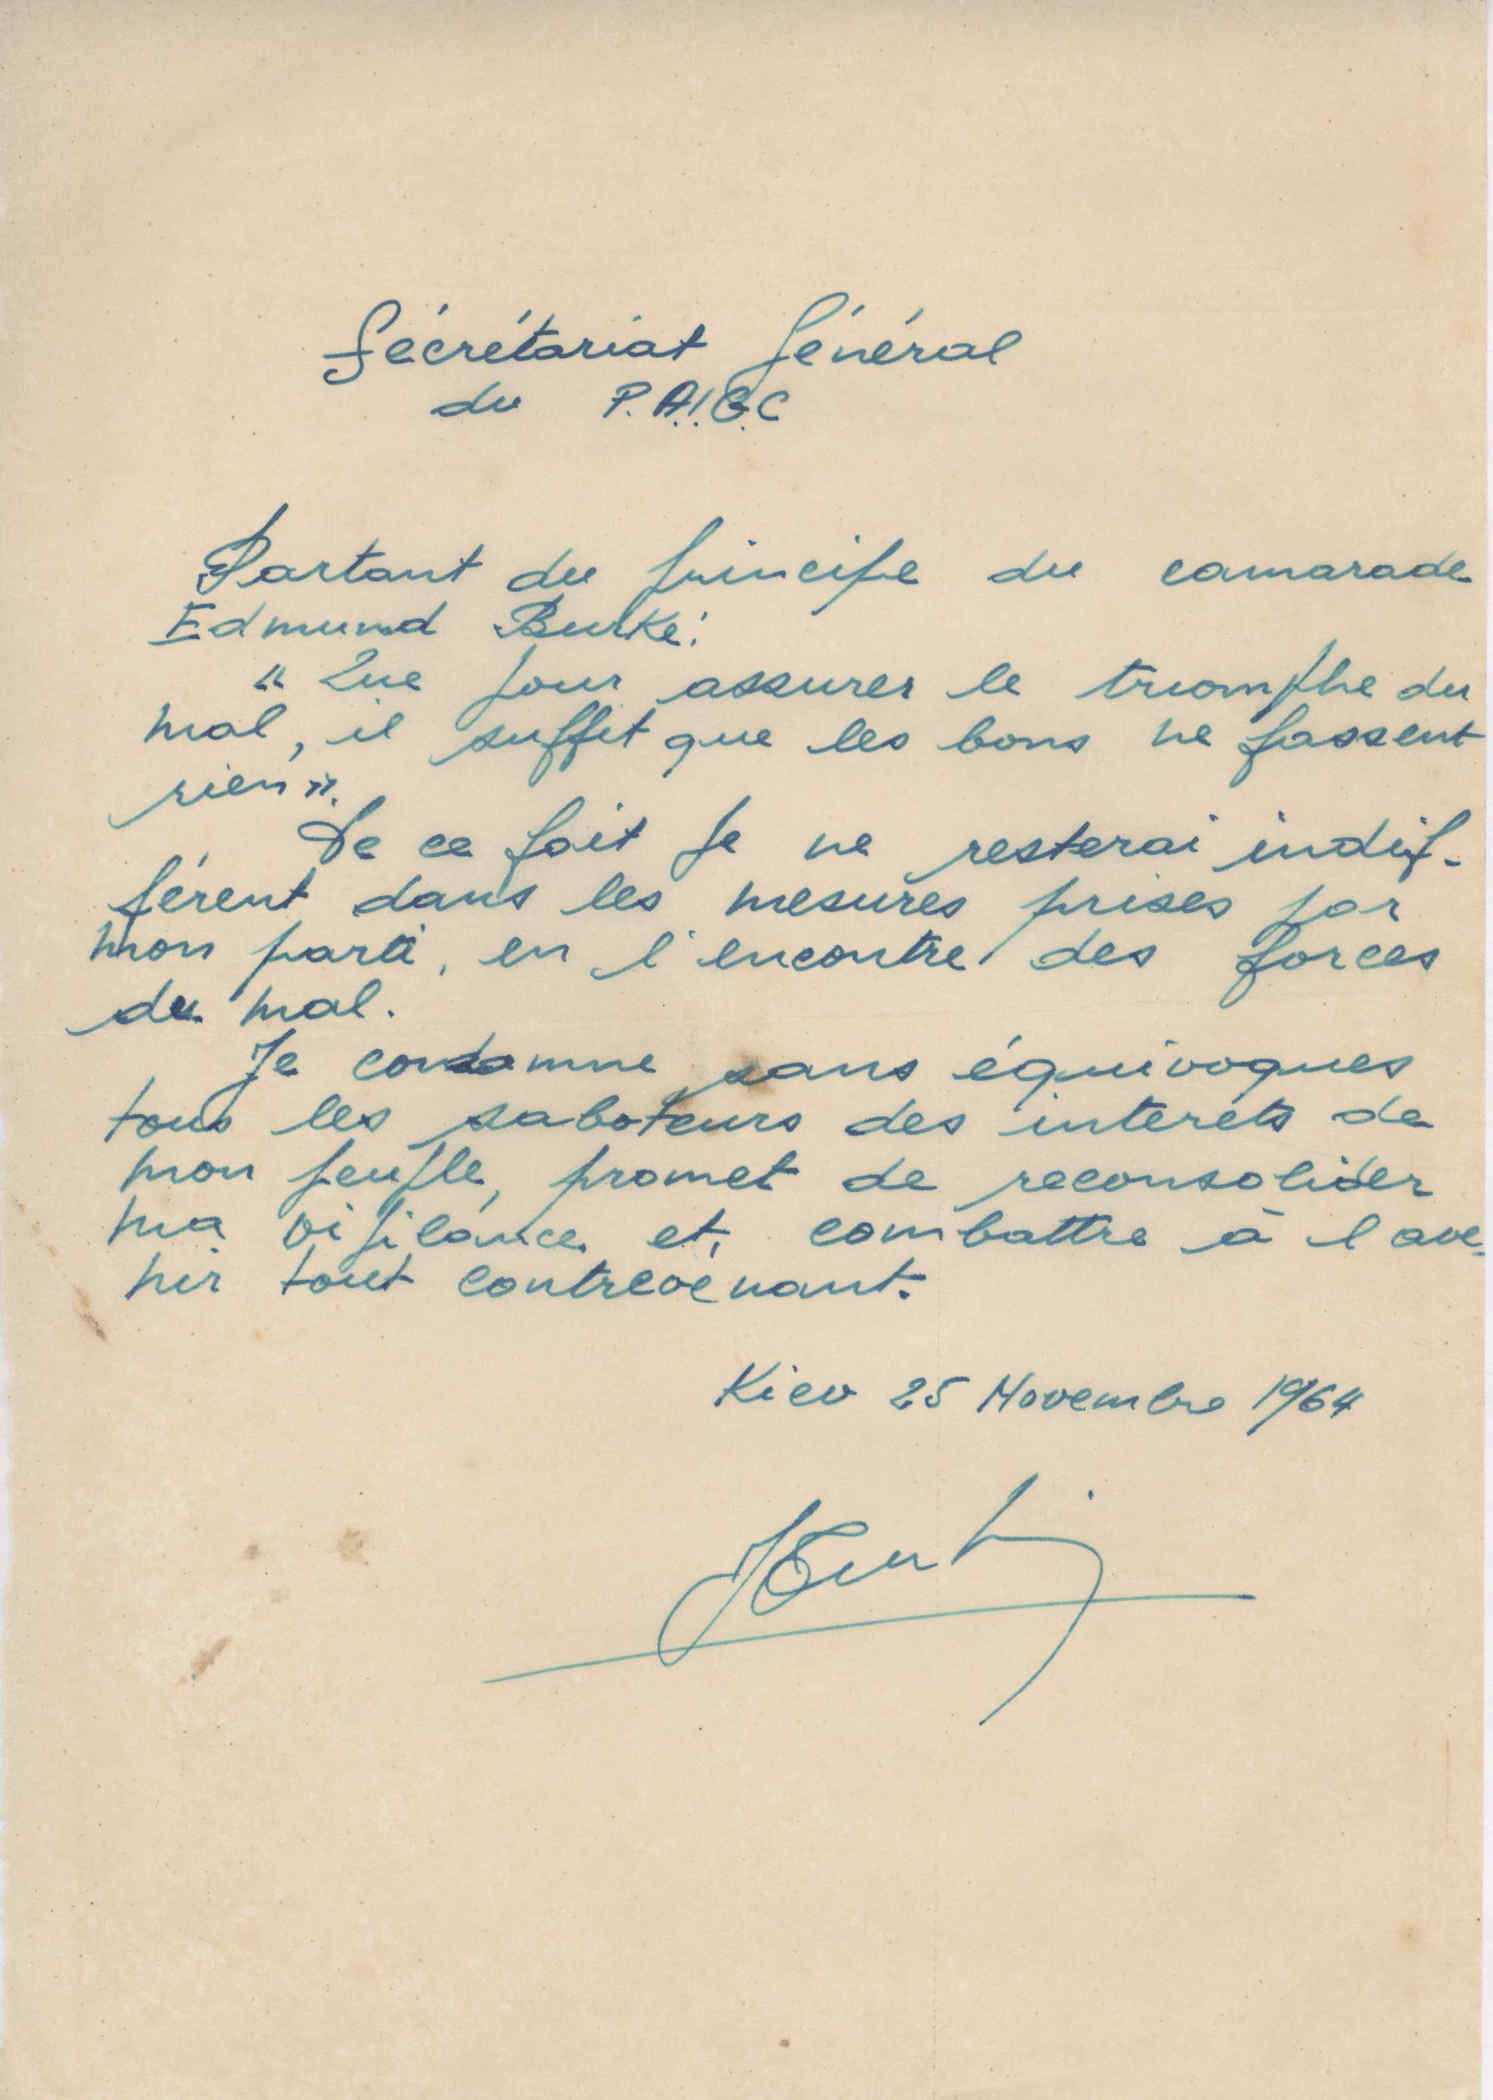 Sécrétariat Général
du P.A.I.G.C
Partant du principe du camarade
Edmund Burke:
"Que pour assurer le triomphe du
mal, il suffit que les bons ne fassent
rien".
De ce fait je ne resterai indif-
férent dans les mesures prises par
mon parti, en l'encontre des forces
du mal.
Je condamne sans équivoques
tous les saboteurs des interets de
mon peuple, promet de reconsolider
ma vigilance et, combattre à l'ave-
nir tout contrevenant.
Kiev 25 Novembre 1964